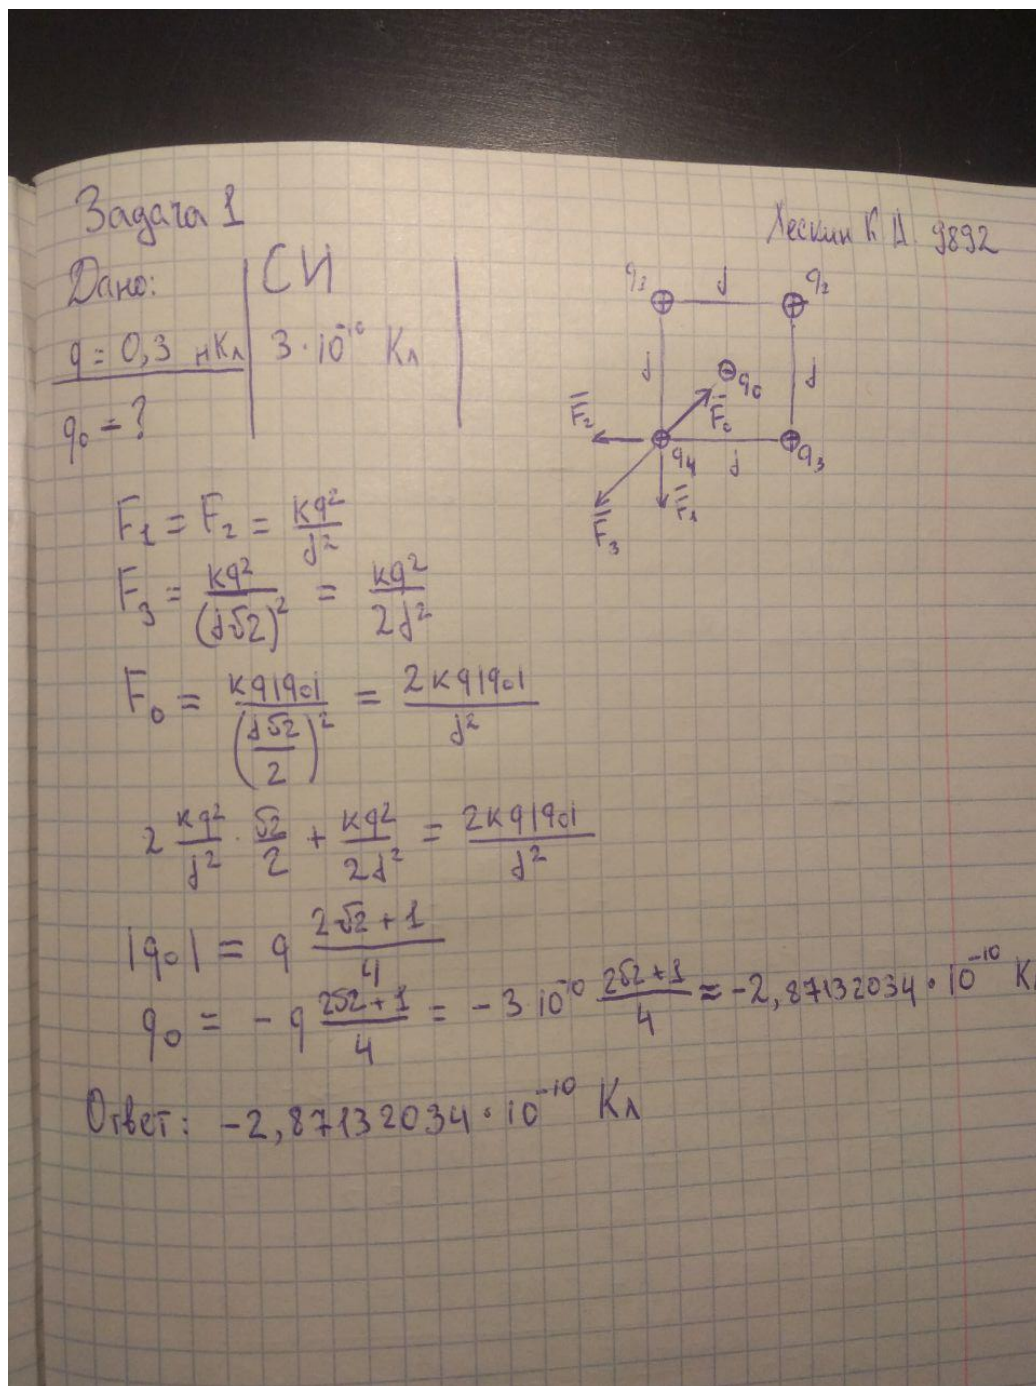 Задача 1
Лескин К Д 9892
Дано:
СИ
q = 0,3 нКл
3·10⁻¹⁰ Кл
q₀ - ?
q₁ d q₂
d q₀ d
F̅₂ F̅₀
q₄ d q₃
F̅₃ F̅₁
F₁ = F₂ = kq²/d²
F₃ = kq²/(d√2)² = kq²/2d²
F₀ = kq|q₀|/(d√2/2)² = 2kq|q₀|/d²
2 kq²/d² · √2/2 + kq²/2d² = 2kq|q₀|/d²
|q₀| = q (2√2 + 1)/4
q₀ = - q (2√2 + 1)/4 = - 3·10⁻¹⁰ (2√2 + 1)/4 = -2,87132034·10⁻¹⁰ Кл
Ответ: -2,87132034·10⁻¹⁰ Кл